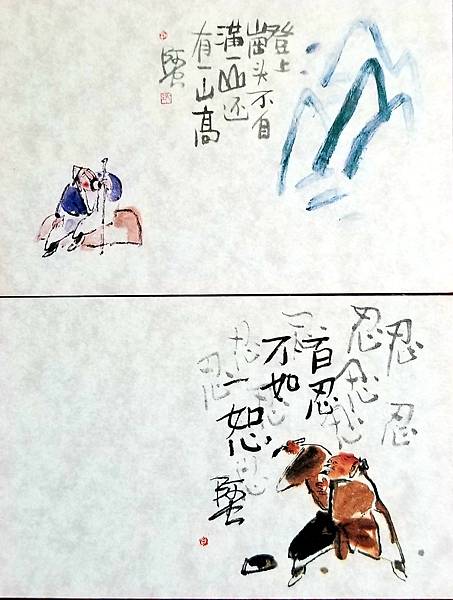 登上
头不自
满一山还
有一山高
忍忍
忍忍忍
百忍
不如
一恕
忍